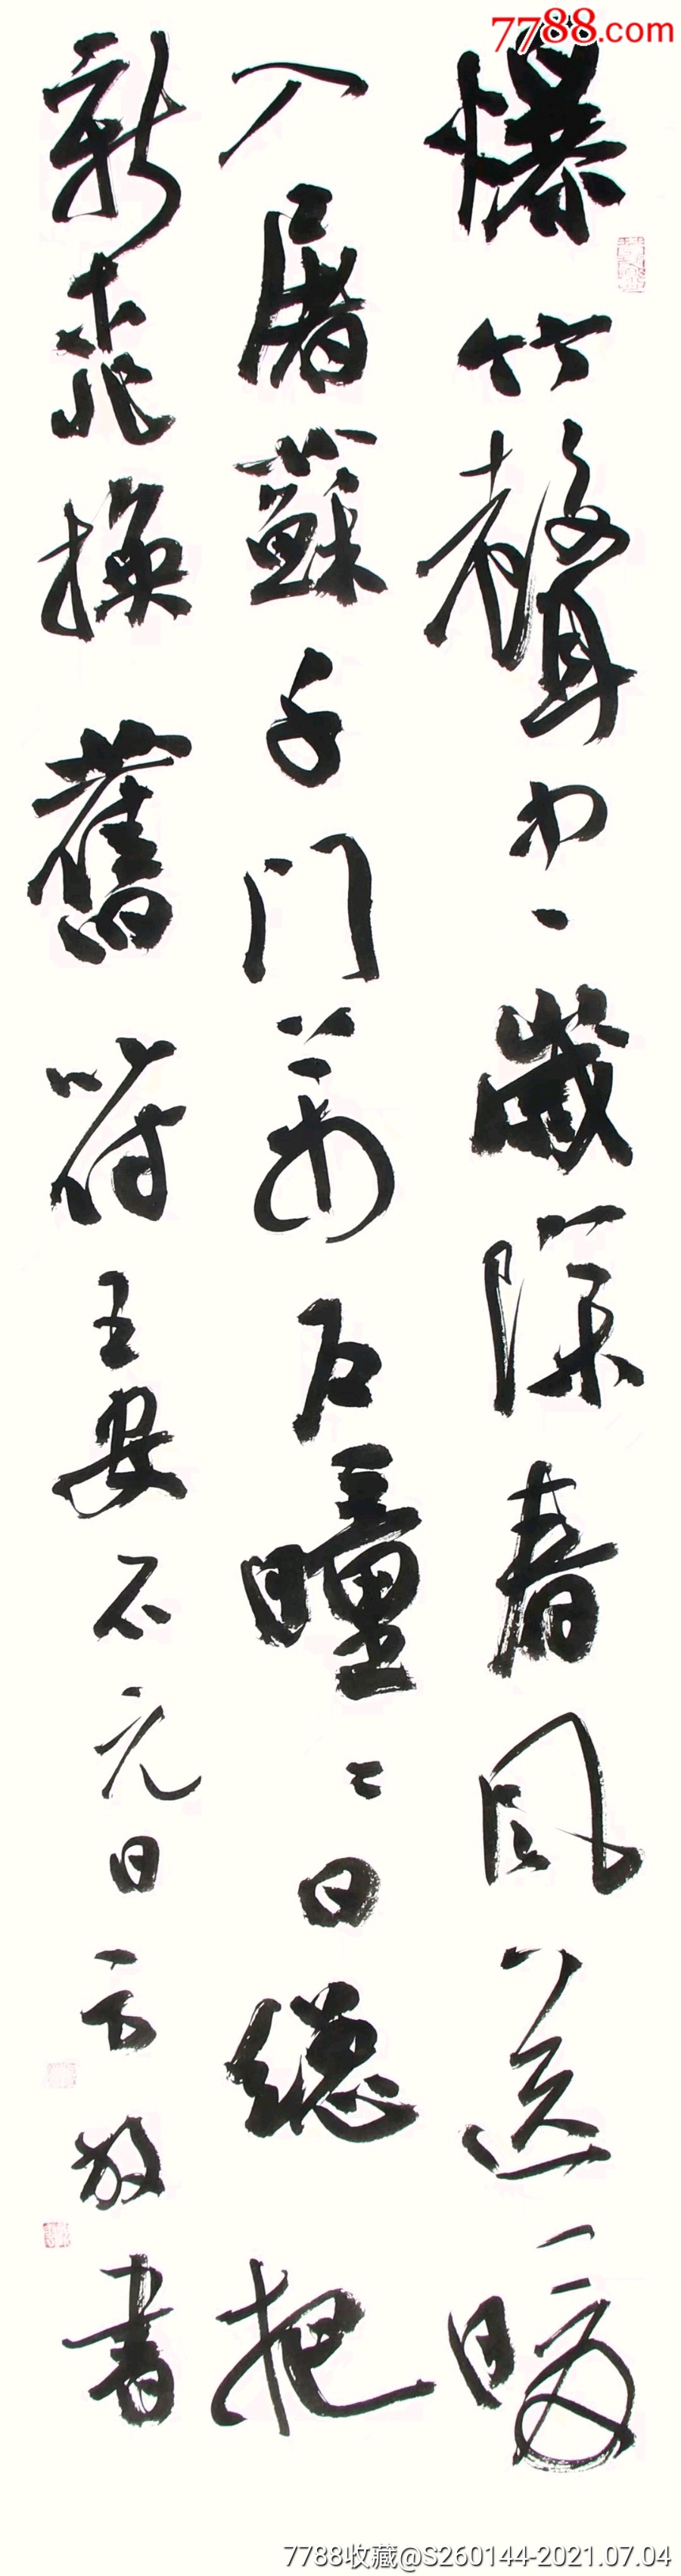 7788.com
爆竹聲中一歲除春風送暖
入屠蘇千门萬户曈〻日總把
新桃換舊符王安石元日書
7788收藏@S260144-2021.07.04